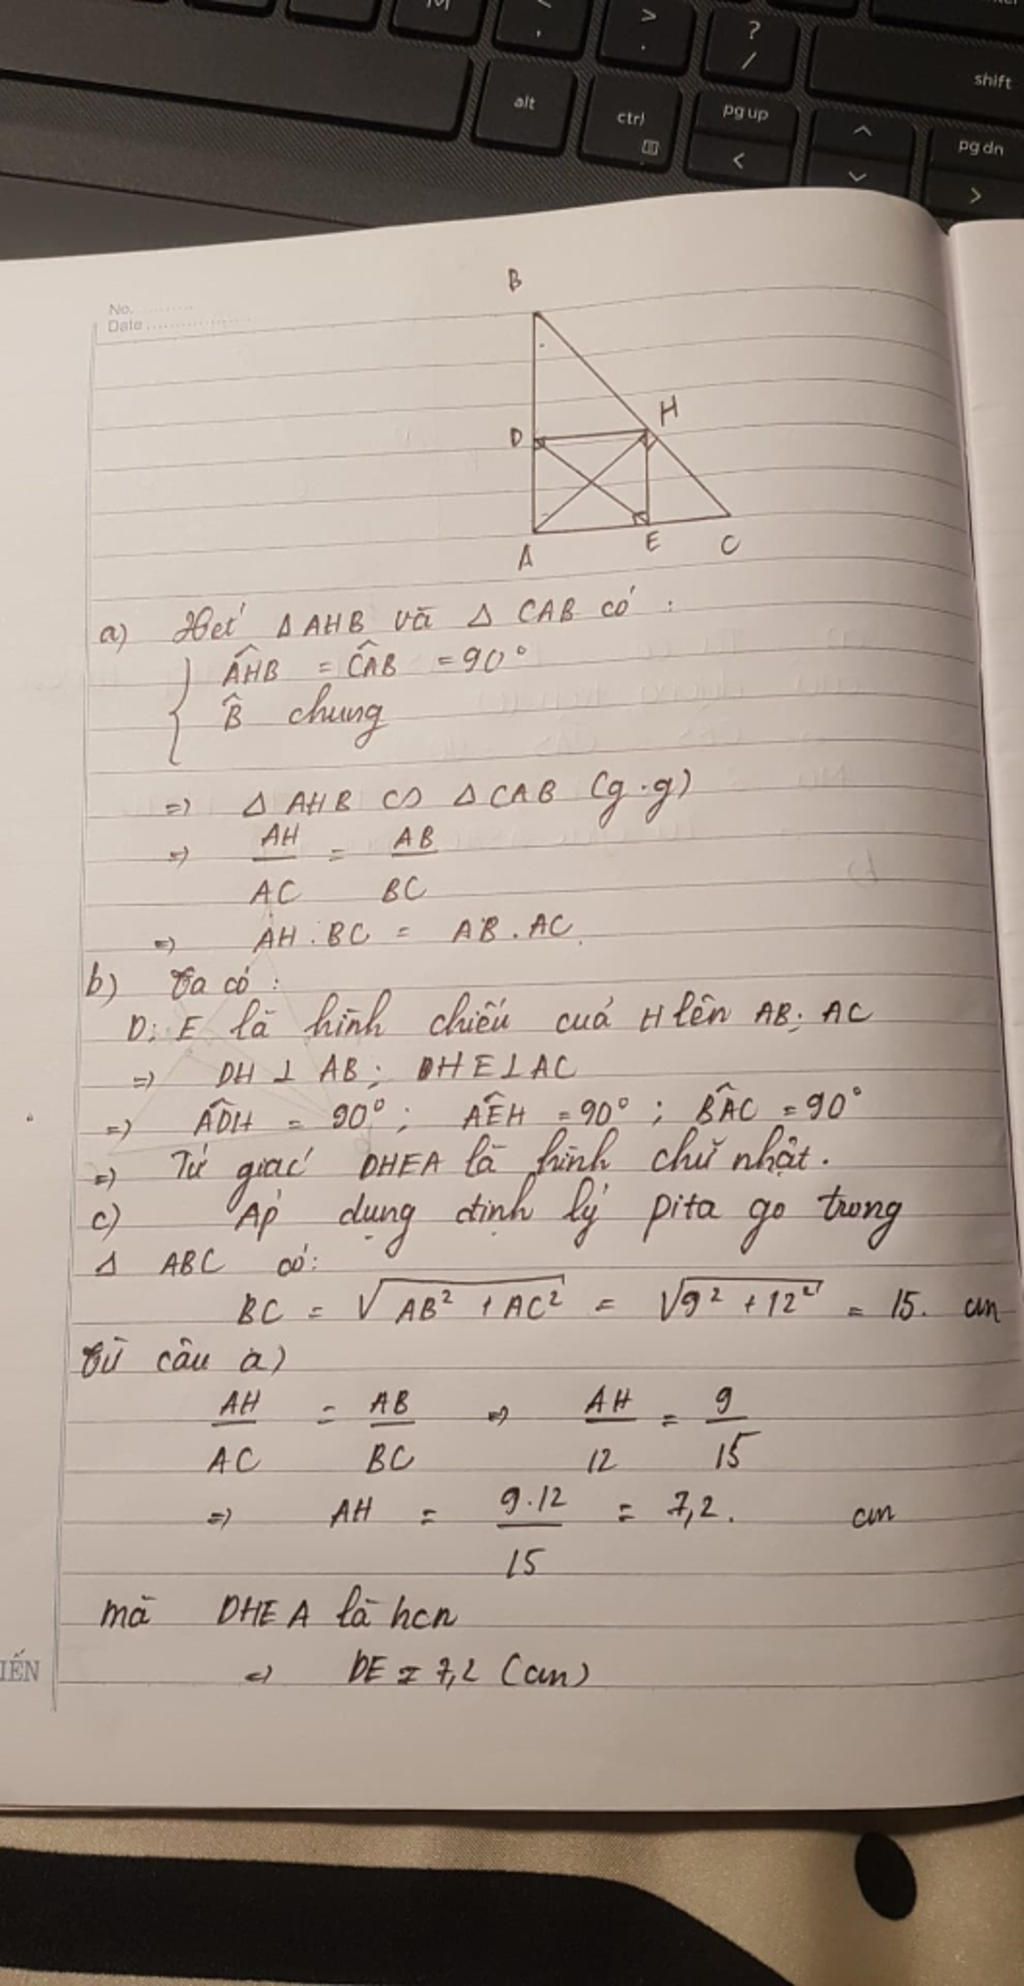 M < , > . ? /
shift
alt ctrl pg up < pg dn >
No.
Date
B
D H
A E C
a) Xét Δ AHB và Δ CAB có :
AHB = CAB = 90°
B chung
=> Δ AHB ∽ Δ CAB (g.g)
=> AH/AC = AB/BC
=> AH . BC = AB . AC
b) Ta có :
D; E là hình chiếu của H lên AB; AC
=> DH ⊥ AB ; HE ⊥ AC
=> ADH = 90° ; AEH = 90° ; BAC = 90°
=> Tứ giác DHEA là hình chữ nhật.
c) Áp dụng định lý pita go trong
Δ ABC có:
BC = √(AB² + AC²) = √(9² + 12²) = 15. cm
Từ câu a)
AH/AC = AB/BC => AH/12 = 9/15
=> AH = 9.12/15 = 7,2. cm
mà DHEA là hcn
=> DE = 7,2 (cm)
IẾN